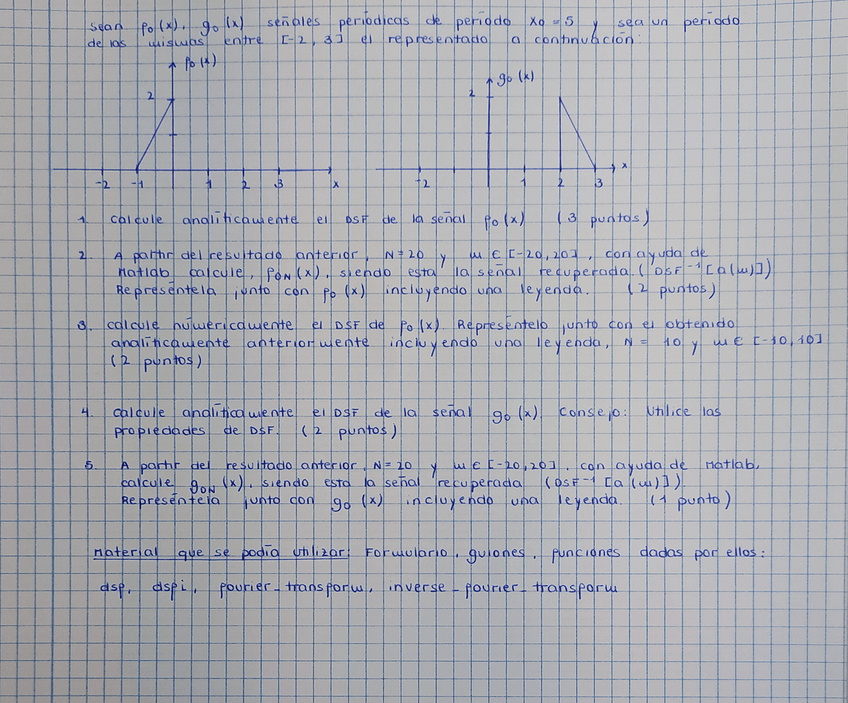 Sean po(x), go(x) señales periódicas de periodo xo = 5 y sea un periodo
de las mismas entre [-2, 3] el representado a continuación:
po(x)
2
-2 -1 1 2 3 x
go(x)
2
-2 1 2 3 x
1. Calcule analíticamente el DSF de la señal po(x) (3 puntos)
2. A partir del resultado anterior, N=20 y m ∈ [-20,20], con ayuda de
Matlab calcule, poN(x), siendo esta la señal recuperada (DSF⁻¹[a(m)])
Represéntela junto con po(x) incluyendo una leyenda. (2 puntos)
3. Calcule númericamente el DSF de po(x). Represéntelo junto con el obtenido
analíticamente anteriormente incluyendo una leyenda, N = 10 y m ∈ [-10,10]
(2 puntos)
4. Calcule analíticamente el DSF de la señal go(x). Consejo: Utilice las
propiedades de DSF. (2 puntos)
5. A partir del resultado anterior, N=20 y m ∈ [-20,20], con ayuda de Matlab,
calcule goN(x), siendo esta la señal recuperada (DSF⁻¹[a(m)])
Represéntela junto con go(x) incluyendo una leyenda (1 punto)
Material que se podía utilizar: Formulario, guiones, funciones dadas por ellos:
dsf, dsfi, fourier_transform, inverse_fourier_transform